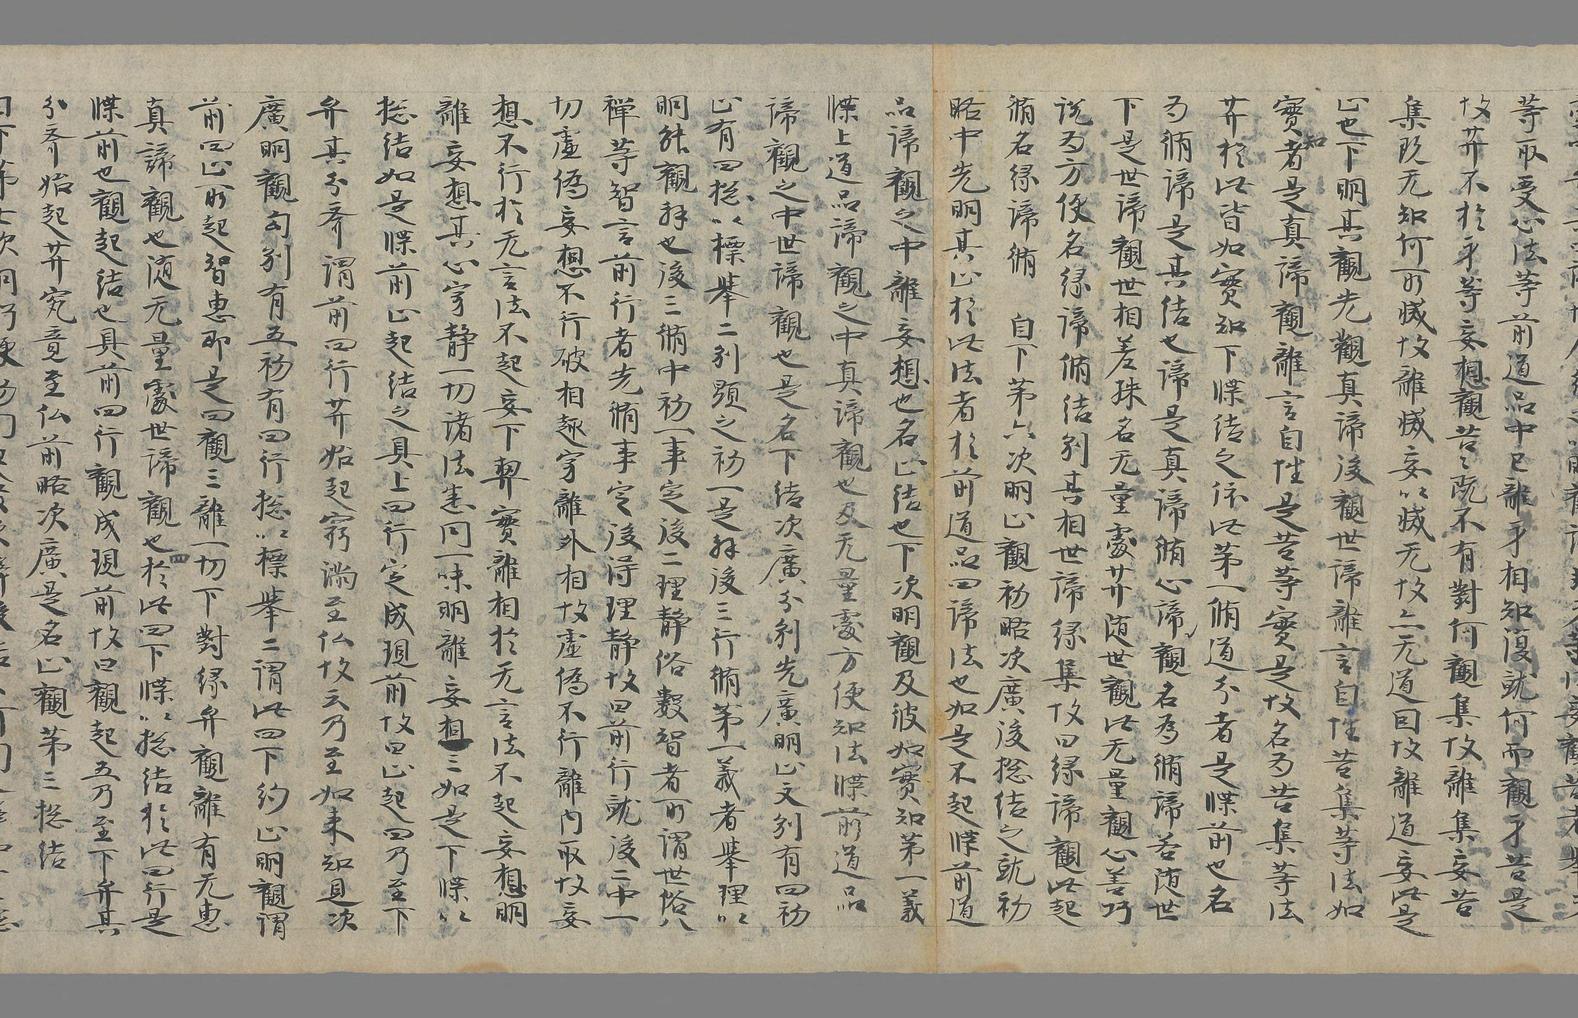 等取受心法等前道品中已離矛相知復就何而觀矛苦是
故廾不於矛等妄想觀苦〻既不有對何觀集故離集妄苦
集既无知何所滅故離滅妄以滅无故亦无道回故離道妄此是
止也下明其觀先觀真諦後觀世諦離言自性苦集等法如
實知者是真諦觀離言自性是苦等實是故名为苦集等法
廾於此皆如實知下牒結之依此第一脩道分者是牒前也名
为脩諦是其結也諦是真諦脩心諦觀名為脩諦若随世
下是世諦觀世相差殊名无量處廾随世觀此无量觀心善巧
說为方便名緣諦脩結別其相世諦緣集故曰緣諦觀此起
脩名緣諦脩 自下第六次明止觀初略次廣後捴結之就初
略中先明其止於此法者於前道品四諦法也如是不起牒前道
品諦觀之中離妄想也名止結也下次明觀及彼如實知第一義
牒上道品諦觀之中真諦觀也及无量處方便知法牒前道品
諦觀之中世諦觀也是名下結次廣分別先廣明止文別有四初
止有四捴以標舉二別顯之初一是解後三行脩第一義者舉理以
明能觀解也後三脩中初一事定後二理靜俗數智者所謂世俗八
禪等智言前行者先脩事定後得理靜故曰前行就後二中一
切虛偽妄想不行破相趣寂離外相故虛偽不行離内取故妄
想不行於无言法不起妄下釋實離相於无言法不起妄想明
離妄想其心寂靜一切諸法悉同一味明離妄相三如是下牒以
捴結如是牒前止起結之具上四行定成現前故曰止起四乃至下
弁其分齊謂前四行廾始起窮滿至仏故云乃至如来知見次
廣明觀勾別有五初有四行捴以標舉二謂此四下約止明觀謂
前四止所起智惠即是四觀三離一切下對緣弁觀離有无惠
真諦觀也随无量處世諦觀也四於此四下牒以捴結於此四行是
牒前也觀起結也具前四行觀成現前故曰觀起五乃至下弁其
分齊始起廾究竟至仏前略次廣是名止觀第三捴結